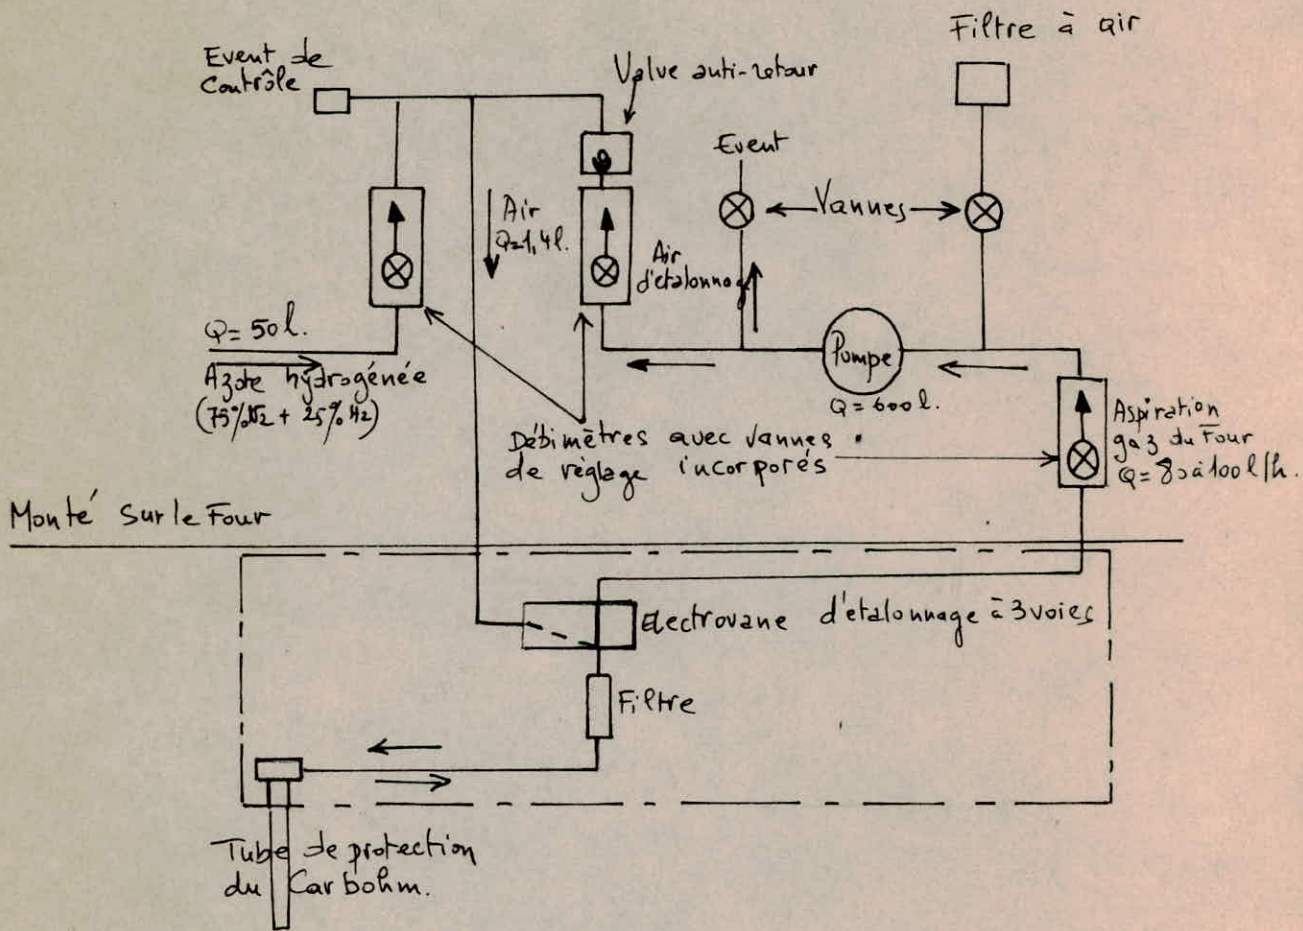 Filtre à air
Event de
Contrôle
Valve anti-retour
Event
Vannes
Air
Q=1,4l.
Air
d'etalonnage
Q= 50l.
Azote hydrogénée
(75%N2 + 25% H2)
Pompe
Q= 600l.
Débimètres avec vannes
de réglage incorporés
Aspiration
gaz du Four
Q= 80 à 100 l/h.
Monté sur le Four
Electrovane d'etalonnage à 3 voies
Filtre
Tube de protection
du Carbohm.